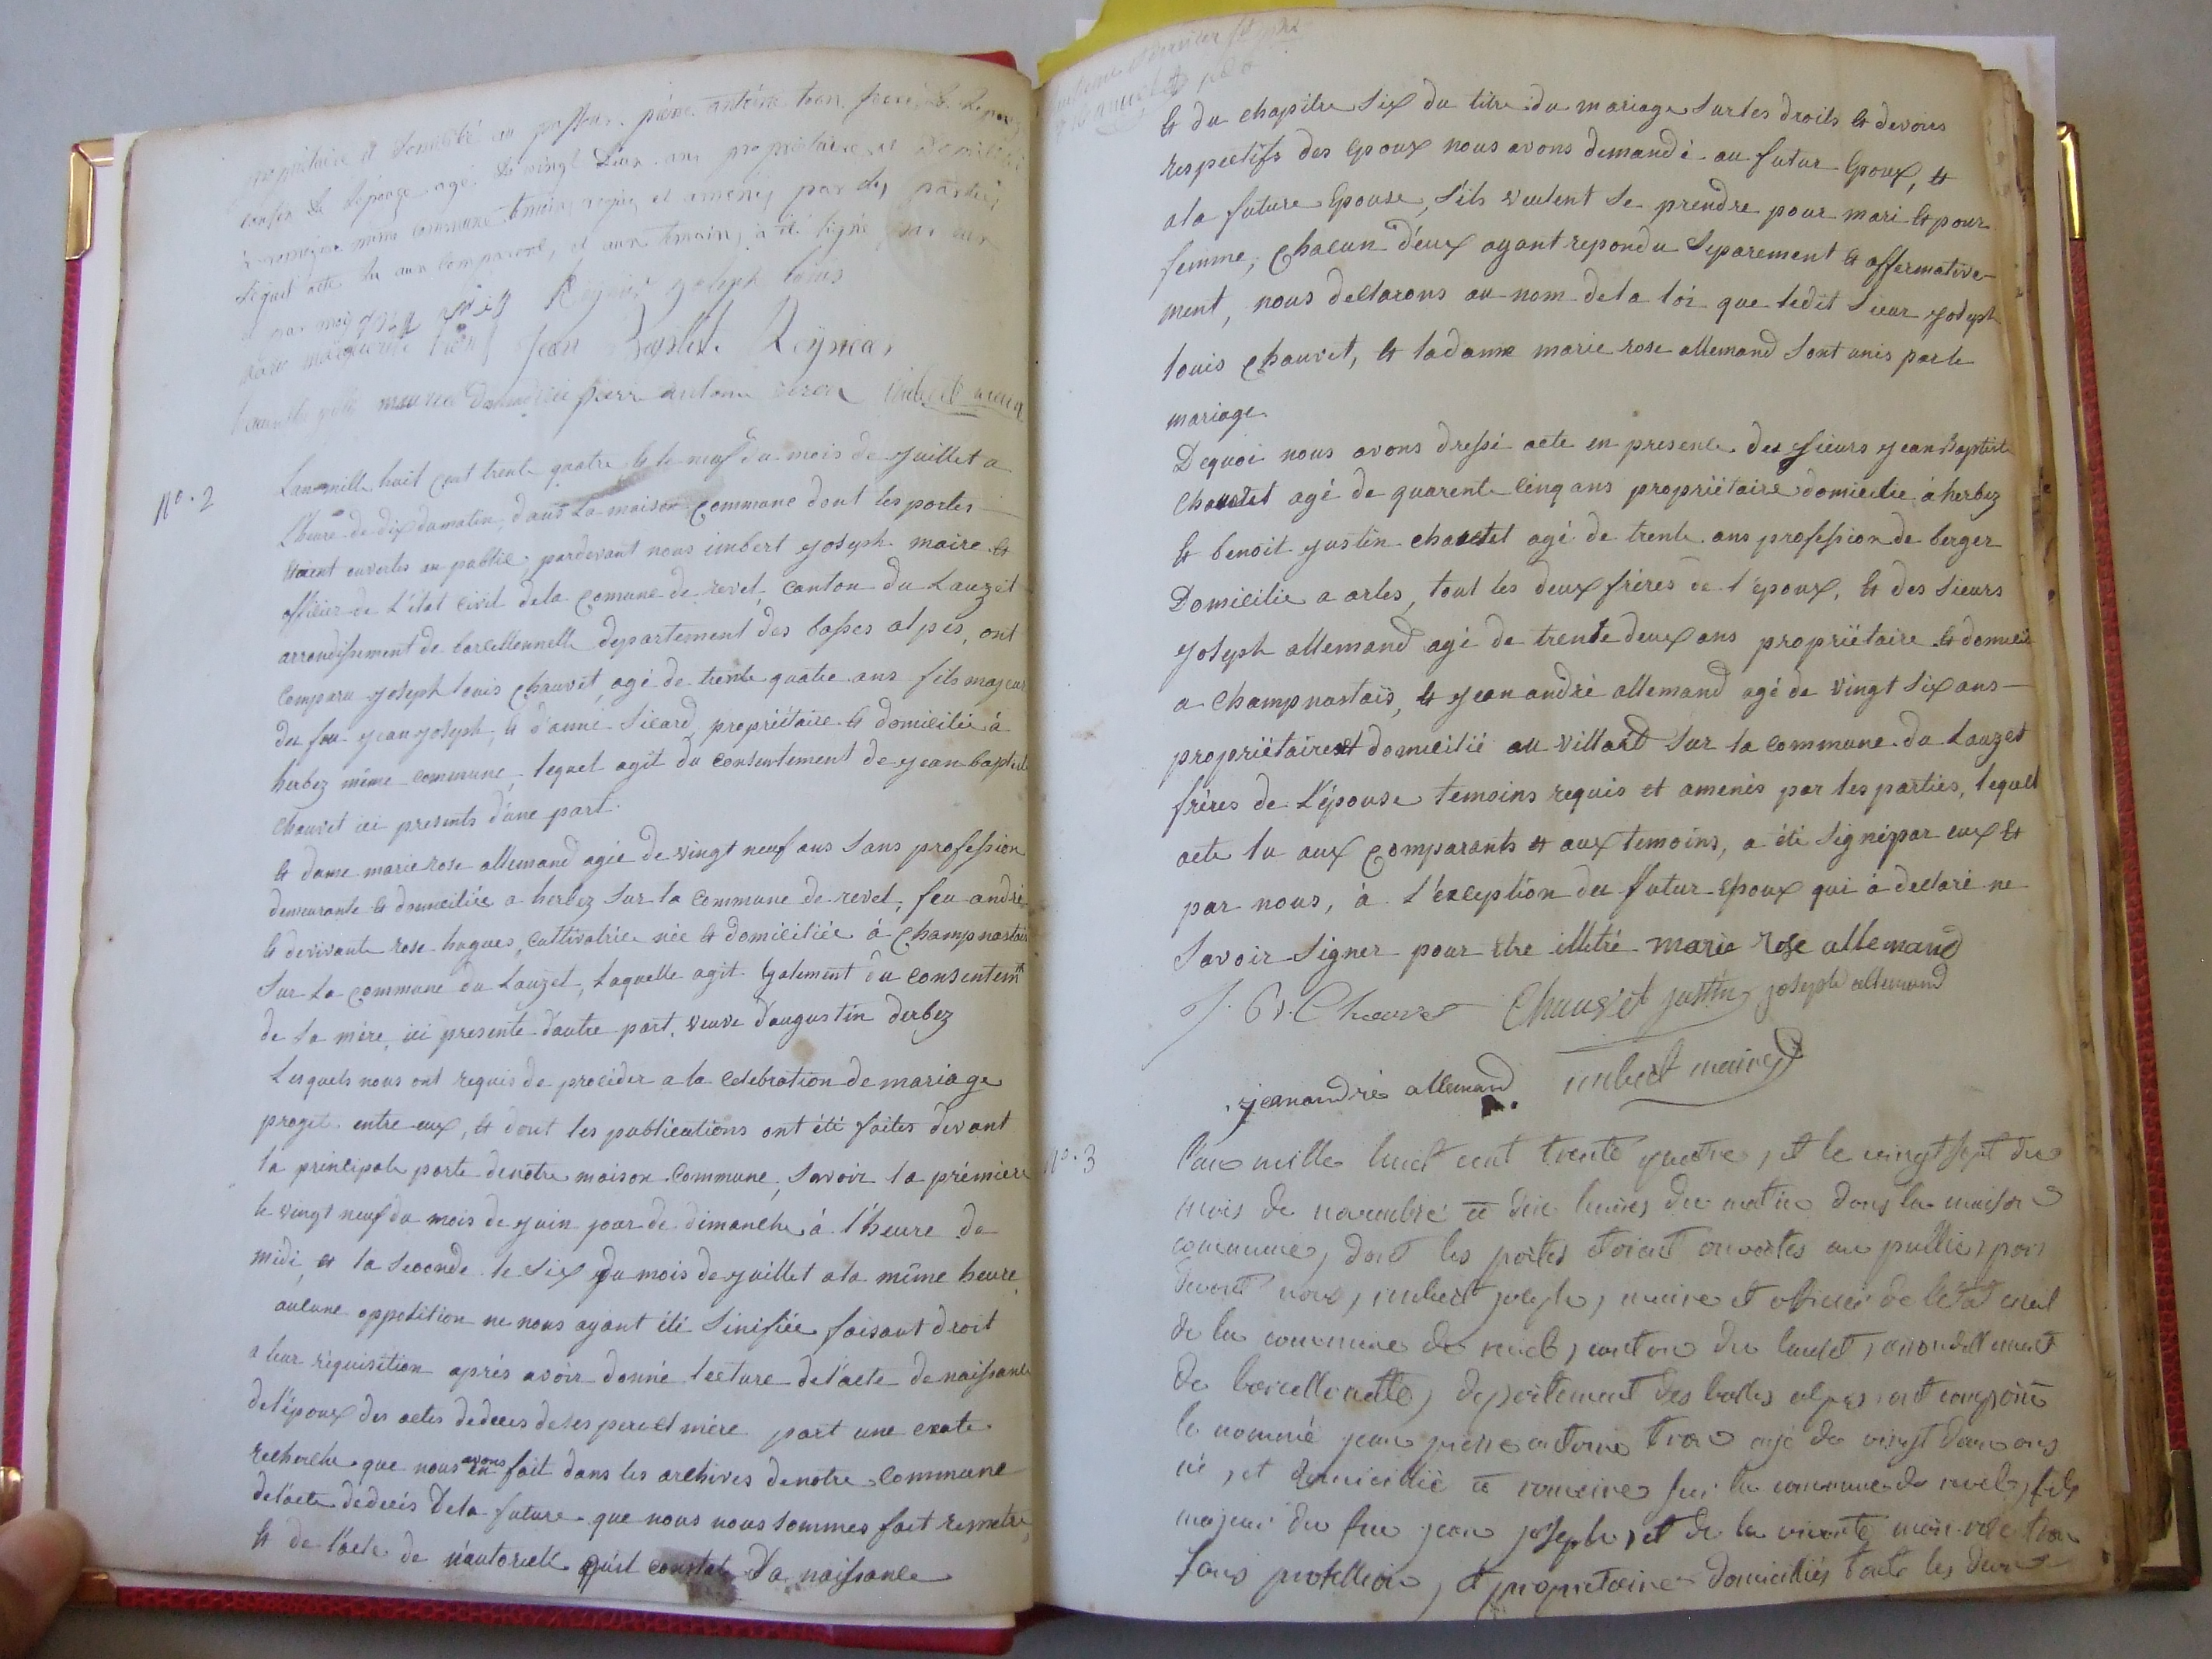 propriétaire et domicilié au passeur. pierre antoine tron
cousin de l'épouse agé de vingt deux ans propriétaire et domicilié
même commune témoins requis et amenés par les parties
lequel acte lu aux comparens, et aux temoins, a été signé par eux
Reynier joseph louis
Jean Baptiste Reynier
pierre antoine
N°. 2
L'an mille huit cent trente quatre & le neuf du mois de juillet a
l'heure de dix du matin, dans la maison commune dont les portes
etaient ouvertes au public, pardevant nous imbert joseph maire &
officier de l'état civil dela comune de revel, canton du Lauzet
arrondissement de barcellonnette departement des basses alpes, ont
comparu joseph louis chauvet, agé de trente quatre ans fils majeur
du feu jean joseph, & d'anne sicard, propriétaire & domicilié à
herbez même commune, lequel agit du consentement de jean baptiste
chauvet ici presents d'une part.
& dame marie rose allemand agée de vingt neuf ans sans profession
demeurante & domiciliée a herbez sur la commune de revel, feu andré
& de vivante rose hugues, cultivatrice née & domiciliée à champnastais
sur la commune du Lauzet, laquelle agit également du consentemt
de sa mère, ici presente d'autre part. veuve d'augustin derbez
Lesquels nous ont requis de proceder a la celebration de mariage
projeté entre eux, & dont les publications ont été faites devant
la principale porte denotre maison commune, savoir la prémiere
le vingt neuf du mois de juin jour de dimanche à l'heure de
midi, et la seconde le six du mois de juillet a la même heure
aucune oppotition ne nous ayant été sinifiée faisant droit
a leur réquisition après avoir donné lecture del'acte de naissance
del'époux des actes dedeces deses pere et mère part une exate
recherche que nous en avons fait dans les archives denotre commune
del'acte dédecés dela future que nous nous sommes fait remetre,
& de l'acte de nautorieté qu'il constate sa naissance
& du chapitre six du titre du mariage sur les droits & devoirs
respectifs des époux nous avons demandé au futur époux, &
a la future épouse, s'ils veulent se prendre pour mari & pour
femme, chacun d'eux ayant repondu separement & affermative-
ment, nous declarons au nom dela loi que ledit sieur joseph
louis chauvet, & la dame marie rose allemand sont unis par le
mariage.
Dequoi nous avons dressé acte en presence des sieurs jean Baptiste
chauvet agé de quarente cinq ans propriétaire domicilié à herbez
& benoit justin chauvet agé de trente ans profession de berger
Domicilié a arles, tout les deux frères de l'époux, & des sieurs
joseph allemand agé de trente deux ans propriétaire & domicilié
a champnastais, & jean andré allemand agé de vingt six ans
propriétaire et domicilié au villard sur la commune du Lauzet
frères de L'épouse temoins requis et amenés par les parties, lequel
acte lu aux comparants & aux temoins, a été signé par eux &
par nous, à l'exception du futur époux qui à declaré ne
savoir signer pour etre illetré marie rose allemand
J. B. Chauvet Chauvet justin joseph allemand
jean andré allemand imbert maire
N°. 3
l'an mille huit cent trente quatre, et le vingt sept du
mois de novembre a dix heures du matin dans la maison
commune, dont les portes etoient ouvertes au public, par
devant nous, imbert joseph, maire et officier de letat civil
de la commune de revel, canton du lauzet, arrondissement
de barcellonette, departement des basses alpes, ont comparu
le nommé jean pierre antoine tron agé de vingt deux ans
né, et domicilié a rameine sur la commune de revel, fils
majeur du feu jean joseph, et de la vivante marie rose tron
sans profession, et proprietaire domiciliés touts les deux